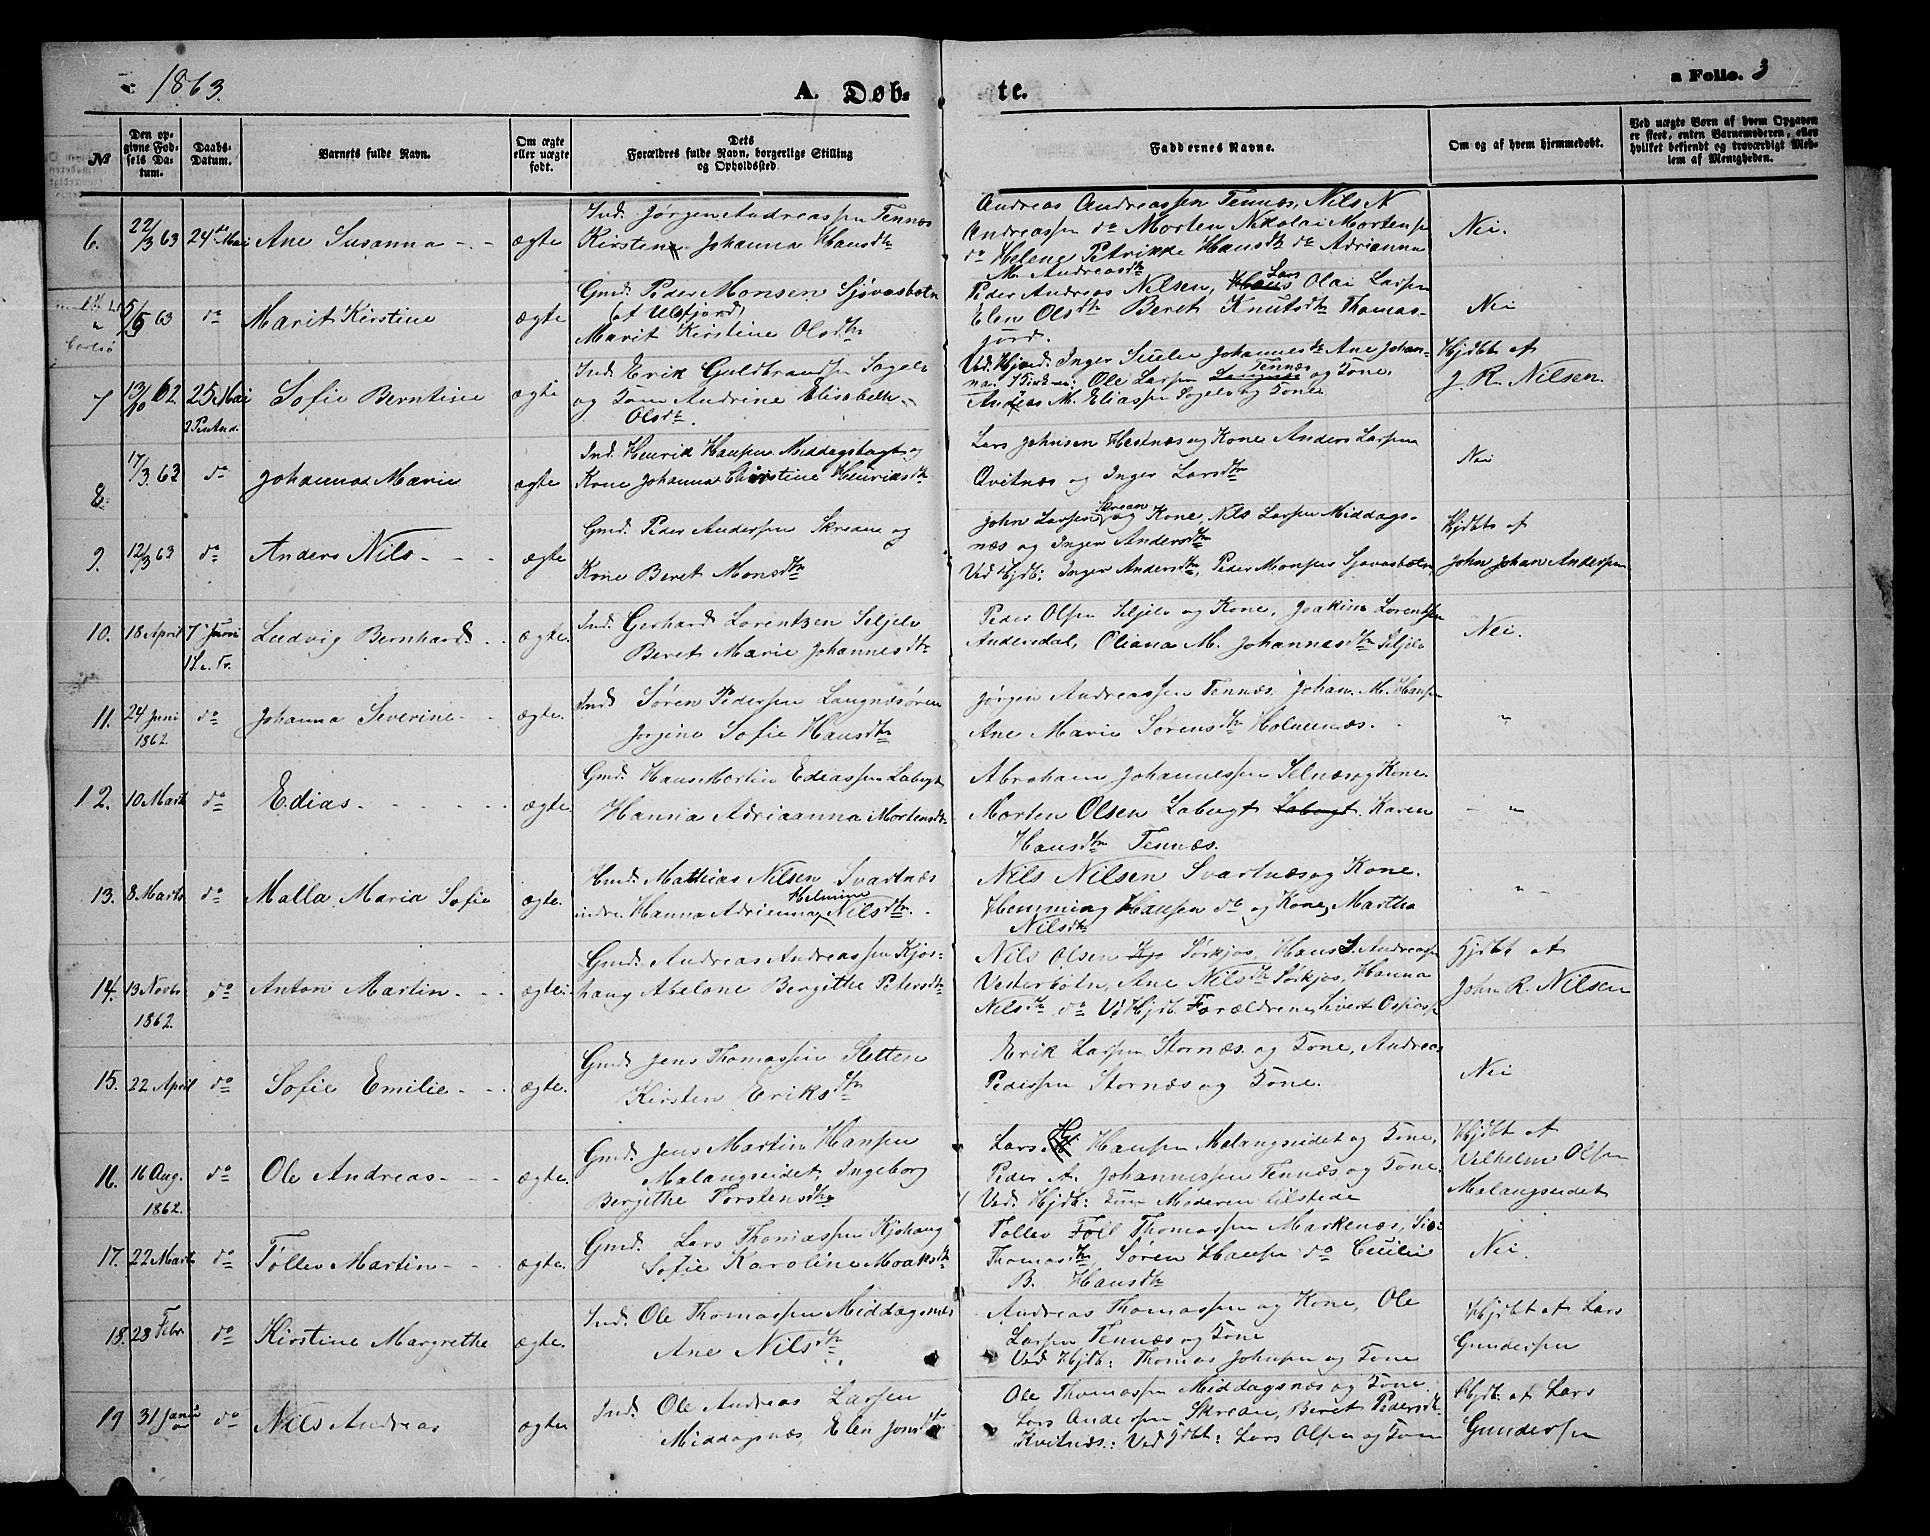 1863.
A. Døb-
te.
a Folio. 3
№
Den opgivne Fødsels Datum.
Daabs-Datum.
Barnets fulde Navn.
Om ægte eller uægte født.
Dets Forældres fulde Navn, borgerlige Stilling og Opholdssted.
Faddernes Navne.
Om og af hvem hjemmedøbt.
Ved uægte Børn af hvem Opgaven er skeet, enten Barnemoderen, eller hvilket bekjendt og troværdigt Medlem af Menigheden.
6. 22/3 63 24de Mai Ane Susanna - - ægte
Ind. Jørgen Andreassen Tennæs
Kirsten Johanna Hansdtr
Andreas Andreassen Tennæs, Nils N
Andreassen do Morten Nikolai Mortens
do Helene Petrikke Hansdtr do Adrianna
M. Andreasdtr
Nei.
5/5 63 do Marit Kirstine ægte
Gmd. Peder Monsen Sjøvasbotn
(af Ulfsfjord)
Marit Kirstine Olsdtr
Peder Andreas Nilsen, Hans Lars Olai Larsen
Elen Olsdtr Beret Knutsdtr Thomas-
jord.
Nei
7 13/10 62 25 Mai Sofie Berntine ægte
2 Pintsd.
Ind. Erik Guldbrandsen Sagelv
og Kone Andrine Elisabeth
Olsdtr.
Ved Hjved. Inger Johannesdtr Ane Johan-
na. I Kirken: Ole Larsen Tennæs og Kone.
Andreas M. Eliassen Sagelv og Kone
Hjdbt af
J. R. Nilsen.
8. 17/3 63 do Johanna Marie ægte
Ind. Henrik Hansen Middagsbugt og
Kone Johanna Christine Henriksdtr
Lars Johnsen Hestnæs og Kone Anders Larsen
Qvitnæs og Inger Larsdtr
Nei
9. 12/3 63 do Anders Nils - - - ægte
Gmd. Peder Andersen Skreden og
Kone Beret Monsdtr
John Larsen Skrean og Kone, Nils Larsen Middags-
næs og Inger Andersdtr
Ved Hjdb: Inger Andersdtr, Peder Monsen Sjøvasbotn
Hjdbt af
John Johan Andersen
10. 18 April 7de Juni Ludvig Bernhard - - ægte.
1 S. e. Tr.
Ind. Gerhard Lorentzen Seljelv
Beret Marie Johannesdtr
Peder Olsen Seljelv og Kone, Joakim Lorentsen
Andersdal, Oliana M. Johannesdtr Seljelv
Nei.
11. 24 Juni 1862. do Johanna Severine - - ægte.
Ind Søren Pedersen Langnæsøren
Jørgine Sofie Hansdtr
Jørgen Andreassen Tennæs. Johan. M. Hansen
Ane Marie Sørensdtr Holmenæs.
"
12. 10 Marts do Edias - - - - - - ægte
Gmd. Hans Martin Ediassen Labugt
Hanna Adrianna Mortensdtr
Abraham Johannessen Selnæs og Kone.
Morten Olsen Labugt Labugt. Karen
Hansdtr Tennæs.
- "
13. 8 Marts do Malla Maria Sofie ægte.
Hmd. Mathias Nilsen Svartnæs
indre. Hanna Adrianna Helmine Nilsdtr.
Nils Nilsen Svartnæs og Kone.
Hemming Hansen do og Kone, Martha
Nilsdtr
- " -
14. 13 Novbr 1862. do Anton Martin - - - ægte:
Gmd. Andreas Andreassen Kjos-
haug Abelone Bergithe Pedersdtr
Nils Olsen Kjo Sørkjos, Hans S. Andreassen
Vesterbotn, Ane Nilsdtr Sørkjos, Hanna
Nilsdtr do Vd Hjdb. Forældrene, Sivert Ospiass
Hjdbt af
John R. Nilsen
15. 22 April do Sofie Emilie - - - ægte.
Gmd. Jens Thomassen Sletten
Kirsten Eriksdtr
Erik Larsen Stornæs. og Kone, Andreas
Pedersen Stornæs og Kone.
Nei
16. 16 Aug. 1862. do Ole Andreas - - - ægte.
Gmd. Jens Martin Hansen
Malangseidet, Ingeborg
Bergithe Torstensdtr
Lars Hansen Malangseidet og Kone,
Peder A. Johannessen Tennæs og Kone.
Ved. Hjdb: Moderen tilstede
Hjdbt af
Vilhelm Olsen
Malangseidet
17. 22 Marts do Tøllev Martin - - - ægte.
Gmd. Lars Thomassen Kjoshaug
Sofie Karoline Moaksdtr
Tollev Toll Thomassen Markenæs,
Thomasdtr Søren Hansen do Cecilie
B. Hansdtr
Nei.
18. 28 Febr. do Kirstine Margrethe ægte.
Ind. Ole Thomassen Middagsnæs
Ane Nilsdtr
Andreas Thomassen og Kone, Ole
Larsen Tennæs og Kone
Ved Hjdb: Thomas Johnsen og Kone
Hjdbt af Lars
Gundersen
19 31 Januar do Nils Andreas ægte.
Ind. Ole Andreas Larsen
Middagsnæs, Elen Jonsdtr
Ole Thomassen Middagsnæs og Kone.
Lars Andersen Skrean, Beret Pedersdtr.
Kvitnæs: Ved Hjdbt: Lars Olsen og Kone
Hjdb: af Lars
Gundersen